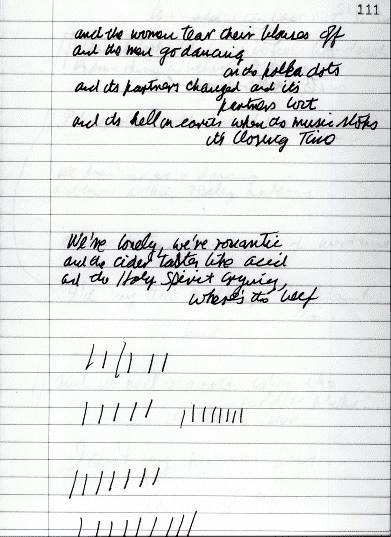 111
and the women tear their blouses off
and the men go dancing
on the polka dots
and its partners changed and its
partners lost
and its hell on earth when the music stops
its Closing Time
We're lonely, we're romantic
and the cider tastes like acid
and the Holy Spirit crying,
where's the beef